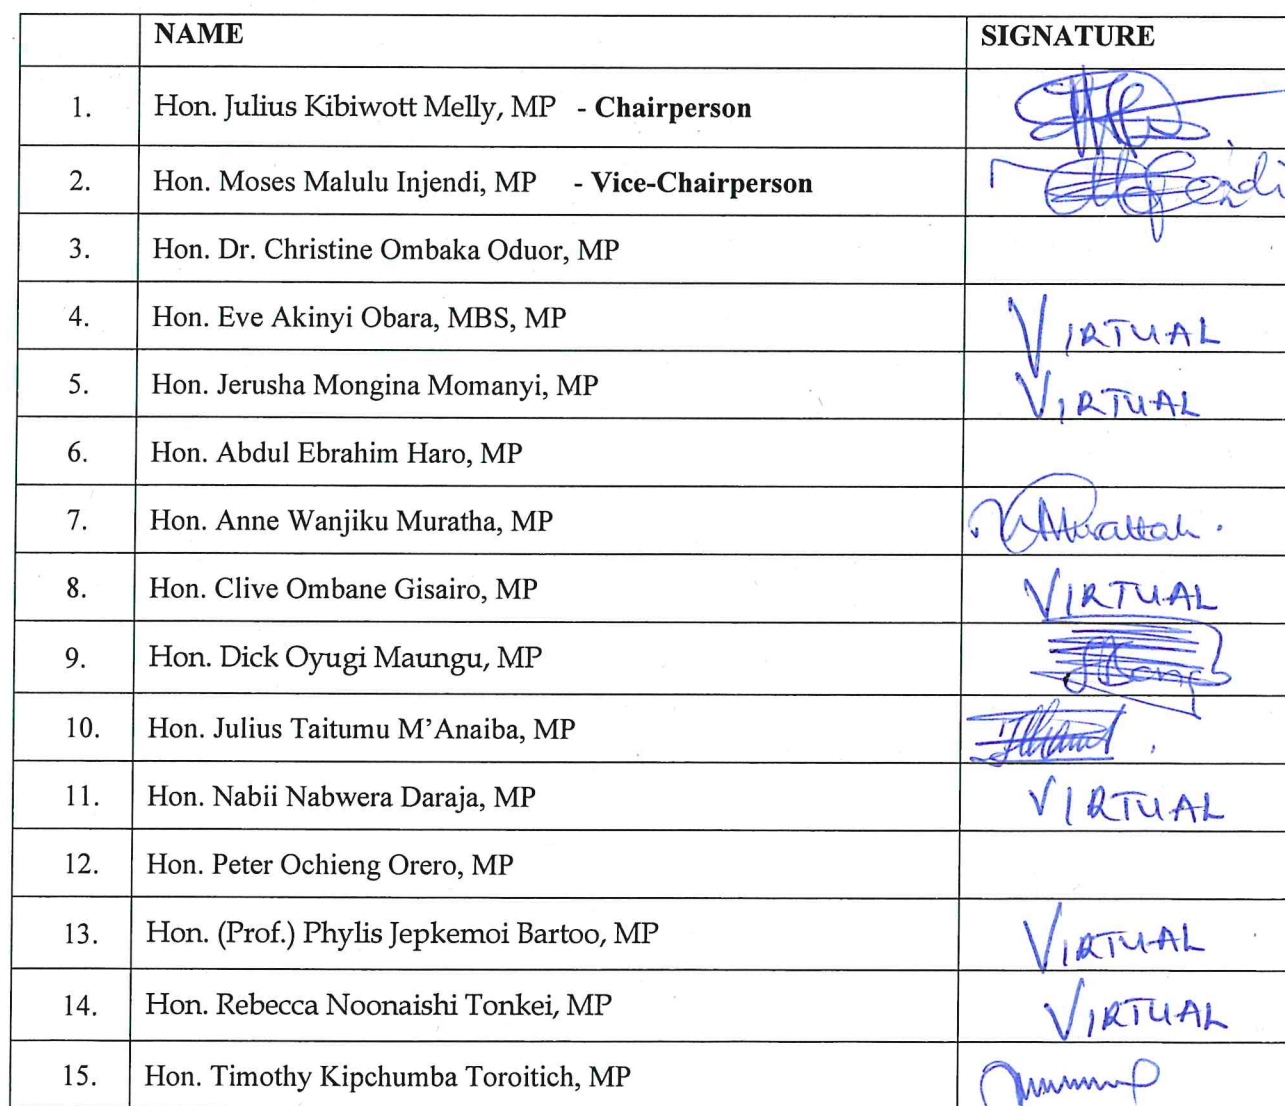 NAME SIGNATURE
1. Hon. Julius Kibiwott Melly, MP - Chairperson
2. Hon. Moses Malulu Injendi, MP - Vice-Chairperson
3. Hon. Dr. Christine Ombaka Oduor, MP
4. Hon. Eve Akinyi Obara, MBS, MP VIRTUAL
5. Hon. Jerusha Mongina Momanyi, MP VIRTUAL
6. Hon. Abdul Ebrahim Haro, MP
7. Hon. Anne Wanjiku Muratha, MP
8. Hon. Clive Ombane Gisairo, MP VIRTUAL
9. Hon. Dick Oyugi Maungu, MP
10. Hon. Julius Taitumu M'Anaiba, MP
11. Hon. Nabii Nabwera Daraja, MP VIRTUAL
12. Hon. Peter Ochieng Orero, MP
13. Hon. (Prof.) Phylis Jepkemoi Bartoo, MP VIRTUAL
14. Hon. Rebecca Noonaishi Tonkei, MP VIRTUAL
15. Hon. Timothy Kipchumba Toroitich, MP